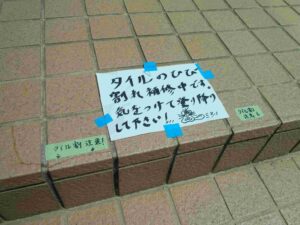 タイルのひび
割れ補修中です。
気をつけて登り降り
して下さい!
タイル割 注意!
タイル割
注意!